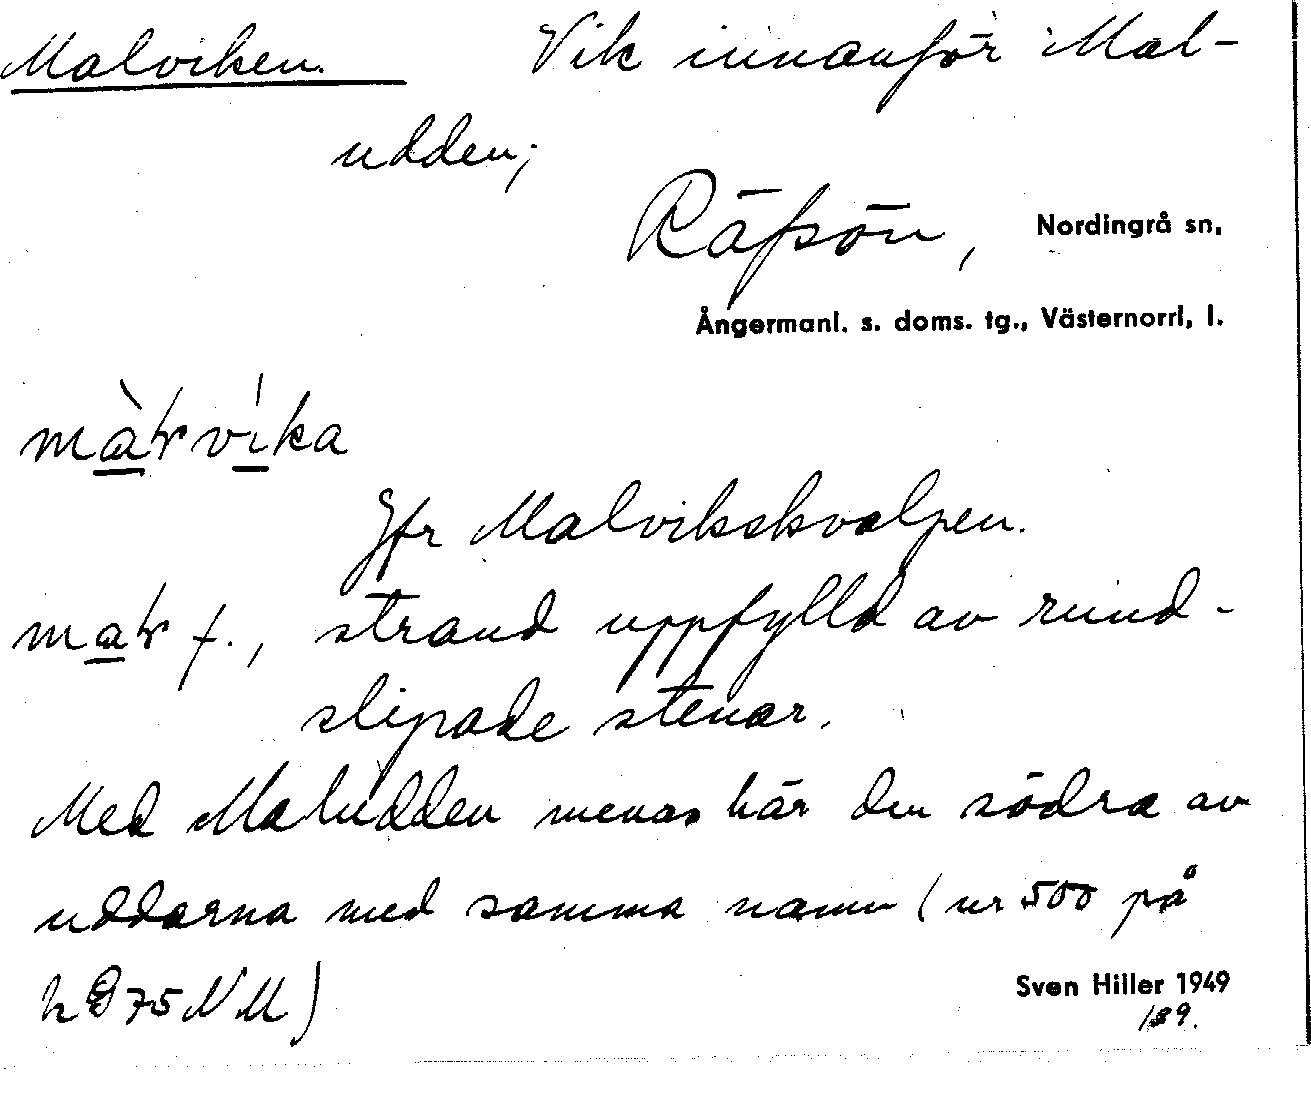 Malviken. Vik innanför Mal-
udden;
Räfsön, Nordingrå sn,
Ångermanl. s. doms. tg., Västernorrl, l.
màɽvíka
Jfr Malvikskvalpen.
maɽ f., strand uppfylld av rund-
slipade stenar.
Med Maludden menas här den södra av
uddarna med samma namn (nr 500 på
75 NM)
Sven Hiller 1949
189.